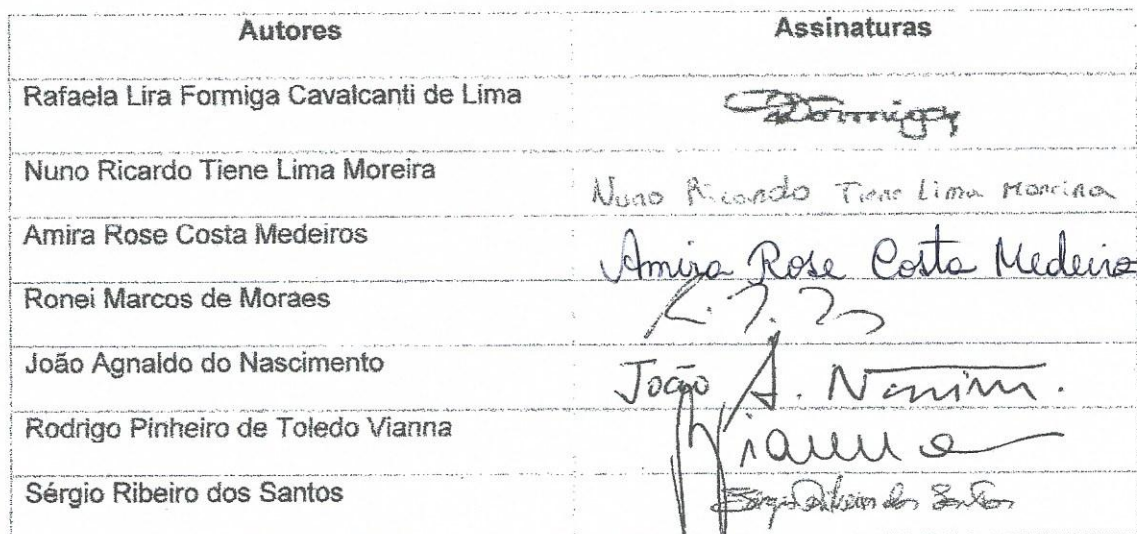 Autores Assinaturas
Rafaela Lira Formiga Cavalcanti de Lima Formiga
Nuno Ricardo Tiene Lima Moreira Nuno Ricardo Tiene Lima Moreira
Amira Rose Costa Medeiros Amira Rose Costa Medeiros
Ronei Marcos de Moraes
João Agnaldo do Nascimento João A. Nascim.
Rodrigo Pinheiro de Toledo Vianna Vianna
Sérgio Ribeiro dos Santos Sérgio Ribeiro dos Santos